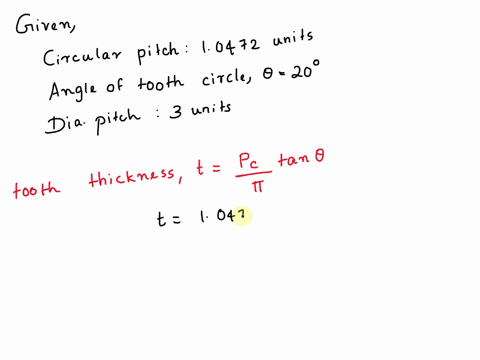 Given,
Circular pitch: 1.0472 units
Angle of tooth circle, θ = 20°
Dia. pitch : 3 units
tooth thickness, t = Pc/π tan θ
t = 1.047